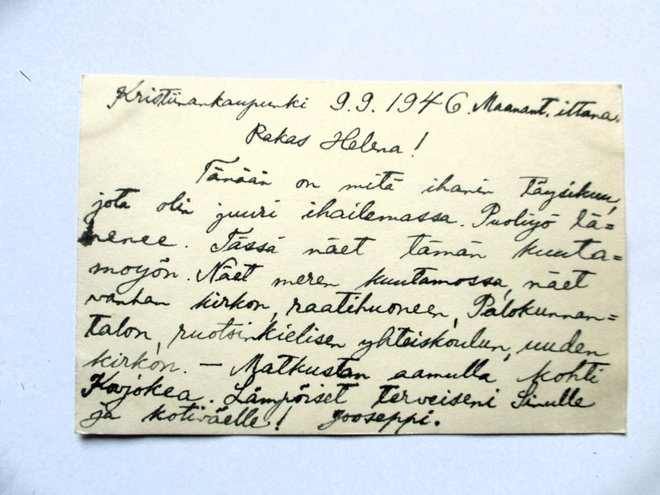 Kristiinankaupunki 9.9.1946. Maanant. iltana.
Rakas Helena!
Tänään on mitä ihanin täysikuu,
jota olin juuri ihailemassa. Puoliyö lä=
henee. Tässä näet tämän kuuta=
moyön. Näet meren kuutamossa, näet
vanhan kirkon, raatihuoneen, Palokunnan=
talon, ruotsinkielisen yhteiskoulun, uuden
kirkon. — Matkustan aamulla kohti
Karjokea. Lämpöiset terveiseni Sinulle
ja kotiväelle! Jooseppi.